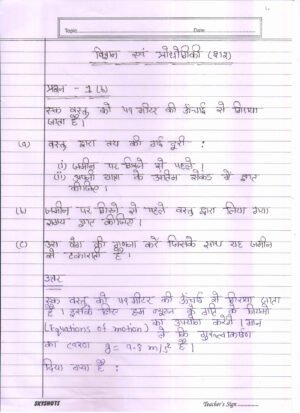 Topic
Date
विज्ञान एवं प्रौद्योगिकी
प्रश्न - 1 (b)
एक वस्तु को 49 मीटर की ऊँचाई से गिराया
जाता है।
(a) वस्तु द्वारा तय की गई दूरी :
(i) जमीन पर गिरने से पहले।
(ii) अपनी यात्रा के अंतिम सेकंड में ज्ञात
कीजिए।
(b) जमीन पर गिरने से पहले वस्तु द्वारा लिया गया
समय ज्ञात कीजिए।
(c) उस वेग की गणना करें जिसके साथ यह जमीन
से टकराती है।
उत्तर
एक वस्तु को 49 मीटर की ऊँचाई से गिराया जाता
है। इसके लिए हम न्यूटन के गति के नियमों
(Equations of motion) का उपयोग करेंगे। मान
लें कि गुरुत्वाकर्षण
का त्वरण g = 9.8 m/s² है।
दिया गया है :
SKYSHOTS
Teacher's Sign